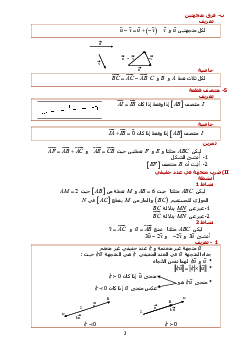 ب- فرق متجهتين
تعريف
لكل متجهتين u و v  u − v = u + (−v)
خاصية
لكل ثلاث نقط A و B و C  BC = AC − AB
5- منتصف قطعة
تعريف
I منتصف [AB] إذا وفقط إذا كان AI = IB
خاصية
I منتصف [AB] إذا وفقط إذا كان IA + IB = 0
تمرين
ليكن ABC مثلثا و E و F نقطتين حيث
1- أنشئ الشكل
2- أثبت أن B منتصف [EF]
II) ضرب متجهة في عدد حقيقي
أنشطة
نشاط 1
ليكن ABC مثلثا حيث AB = 6 و M نقطة من [AB] حيث AM = 2
الموازي للمستقيم (BC) والمار من M يقطع [AC] في N
1- عبر عن MN بدلالة BC
2- عبر عن MN بدلالة BC
نشاط 2
ليكن ABC مثلثا
أنشئ
1 - تعريف
u متجهة غير منعدمة و k عدد حقيقي غير منعدم
جداء المتجهة u في العدد الحقيقي k هي المتجهة ku حيث :
* u و ku لهما نفس الاتجاه
* منحى ku هو
منحى u إذا كان k > 0
عكس منحى u إذا كان k < 0
k < 0
k > 0
2